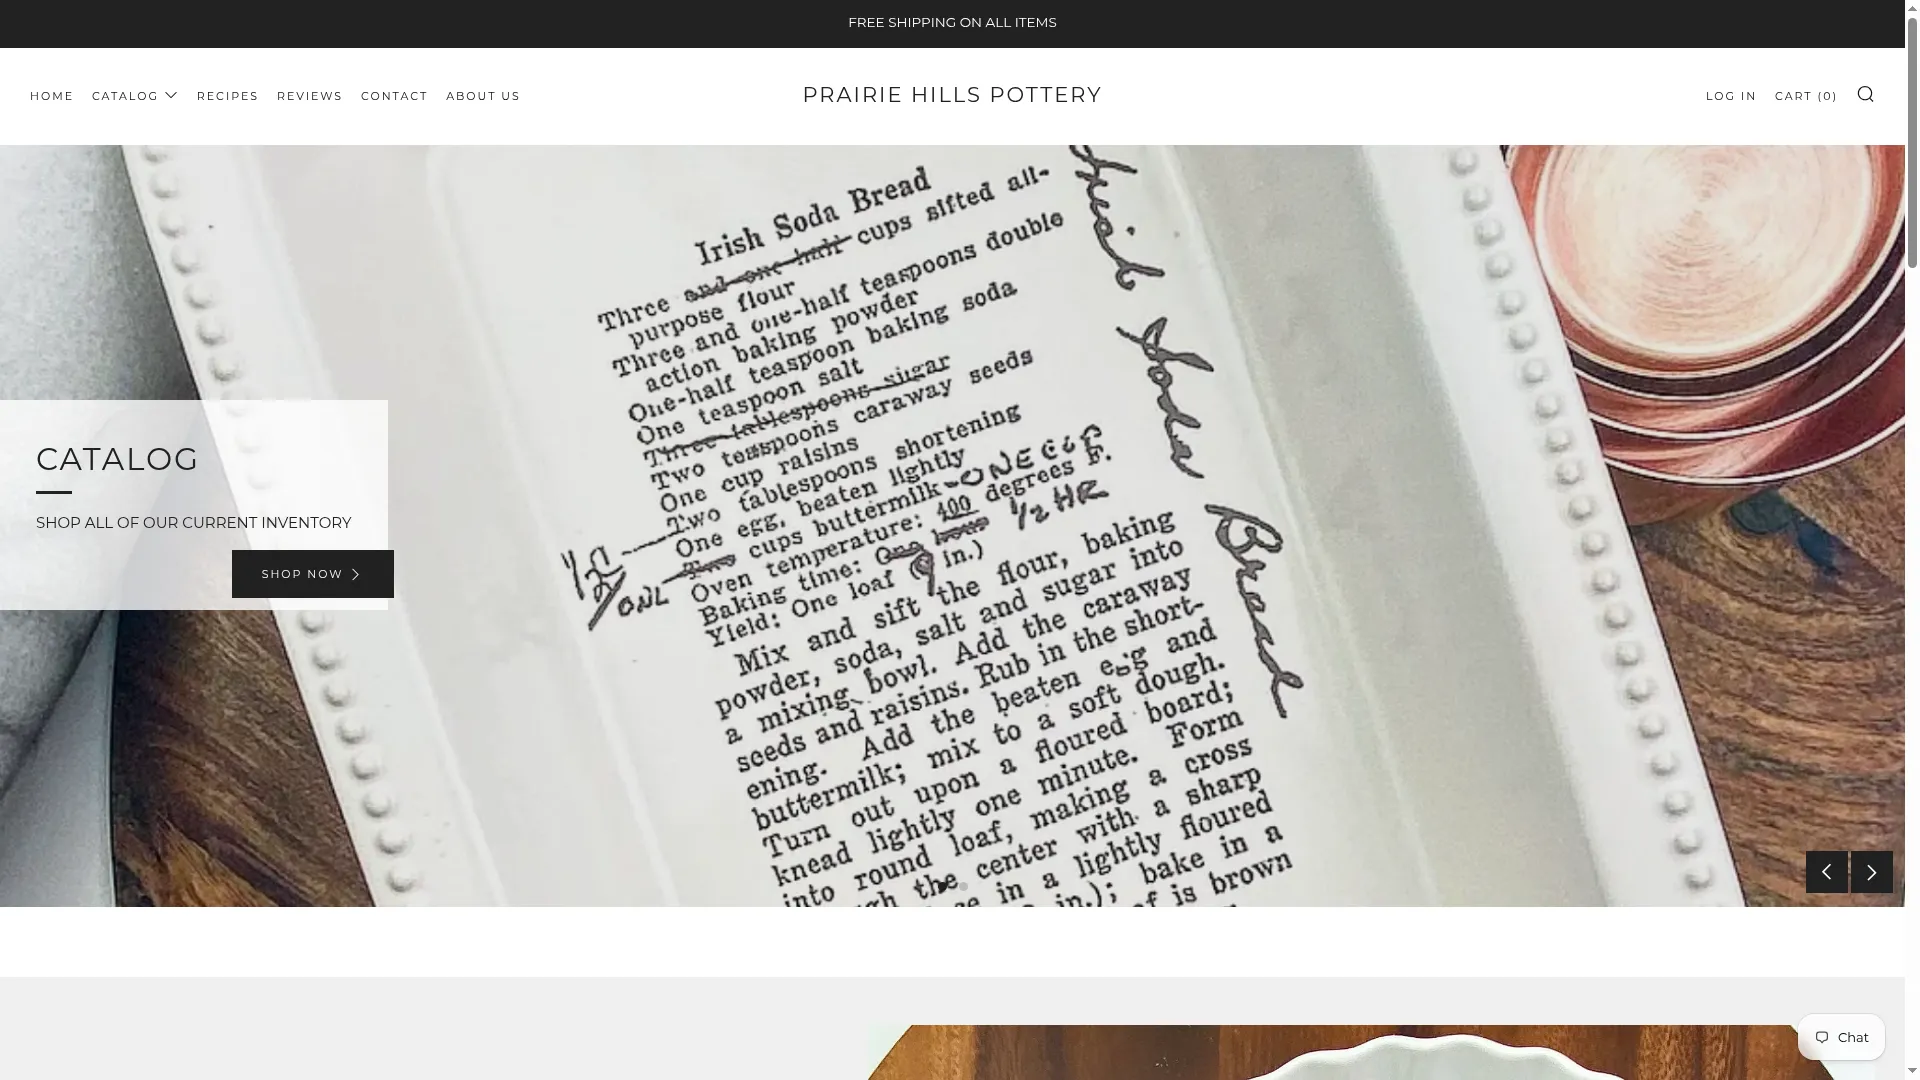 FREE SHIPPING ON ALL ITEMS
HOME CATALOG RECIPES REVIEWS CONTACT ABOUT US
PRAIRIE HILLS POTTERY
LOG IN CART (0)
Irish Soda Bread
Three and one-half cups sifted all-
purpose flour
Three and one-half teaspoons double
action baking powder
One-half teaspoon baking soda
One teaspoon salt
Three tablespoons sugar
Two teaspoons caraway seeds
One cup raisins
Two tablespoons shortening
One egg, beaten lightly
Two cups buttermilk - ONE CUP
Oven temperature: 400 degrees F.
Baking time: One hour 1/2 HR
Yield: One loaf (9 in.)
1/2
ONL
Mix and sift the flour, baking
powder, soda, salt and sugar into
a mixing bowl. Add the caraway
seeds and raisins. Rub in the short-
ening. Add the beaten egg and
buttermilk; mix to a soft dough.
Turn out upon a floured board;
knead lightly one minute. Form
into round loaf, making a cross
the center with a sharp
in a lightly floured
in.); bake in a
is brown
Soda
Bread
CATALOG
SHOP ALL OF OUR CURRENT INVENTORY
SHOP NOW
Chat